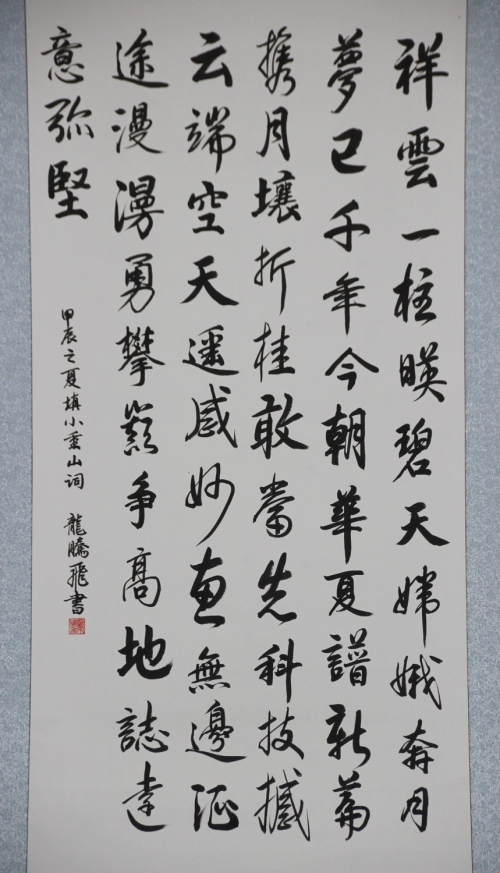 祥雲一柱暎碧天嫦娥奔月
夢已千年今朝華夏譜新篇
携月壤折桂敢當先科技撼
云端空天遥感妙惠無邊征
途漫漫勇攀巅争高地誌遠
意弥堅
甲辰之夏填小重山詞 龍騰飛書